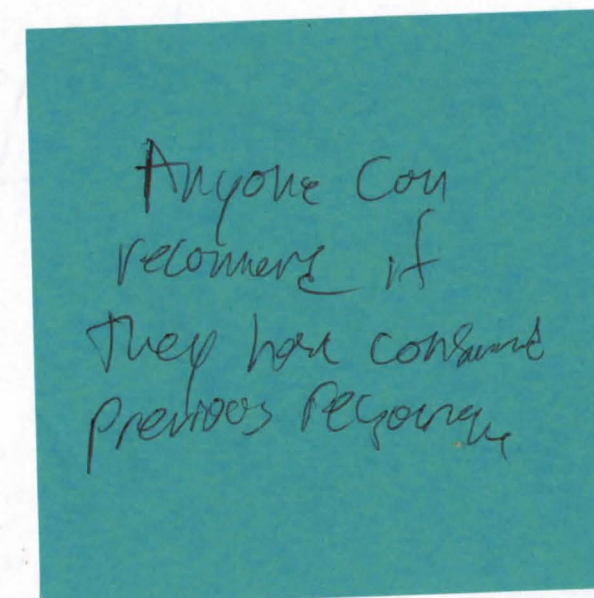 Anyone Can
recommend if
they have consumed
previous resource